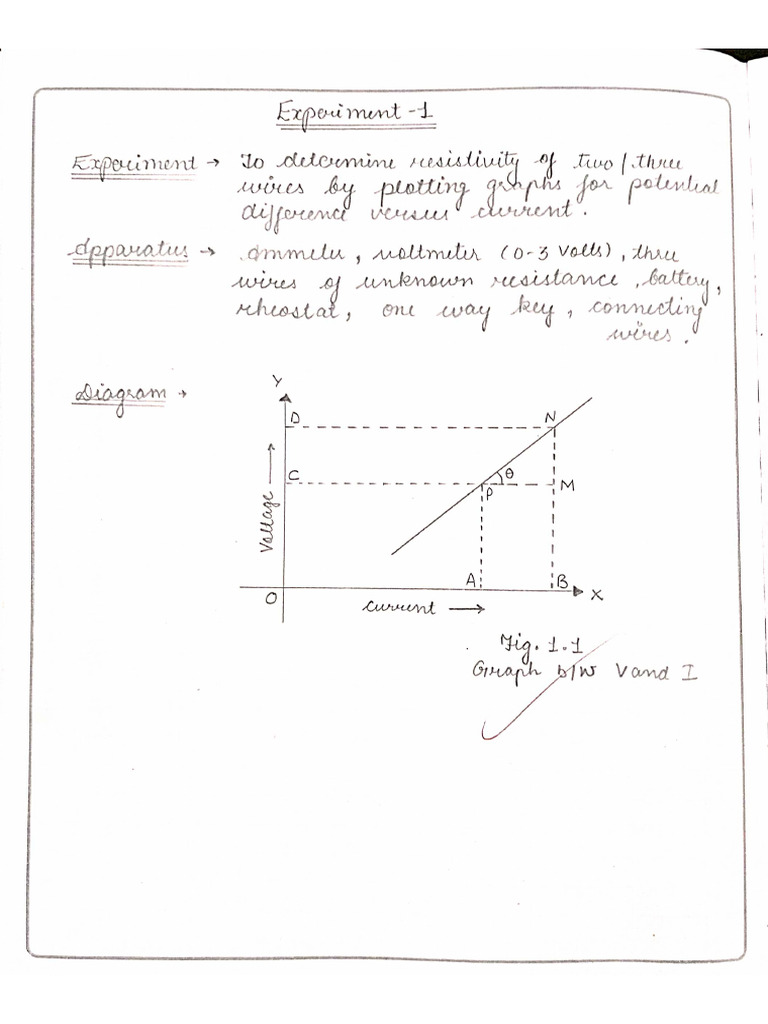 Experiment - 1
Experiment → To determine resistivity of two / three
wires by plotting graphs for potential
difference versus current.
Apparatus → Ammeter, voltmeter (0-3 Volts), three
wires of unknown resistance, battery,
rheostat, one way key, connecting
wires.
Diagram →
Y
D
N
C
θ
P
M
Voltage →
A
B
X
O
Current →
Fig. 1.1
Graph b/w V and I